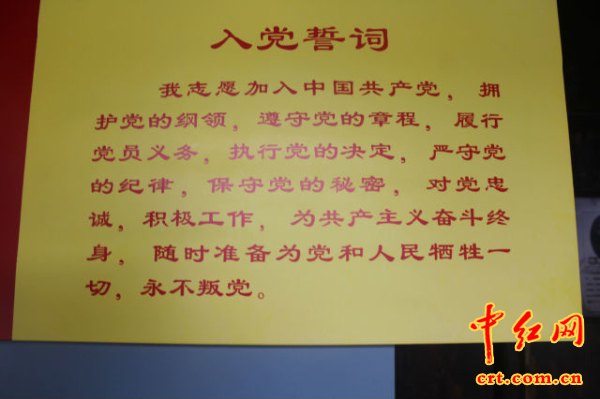 入党誓词
我志愿加入中国共产党，拥
护党的纲领，遵守党的章程，履行
党员义务，执行党的决定，严守党
的纪律，保守党的秘密，对党忠
诚，积极工作，为共产主义奋斗终
身，随时准备为党和人民牺牲一
切，永不叛党。
中红网
crt.com.cn